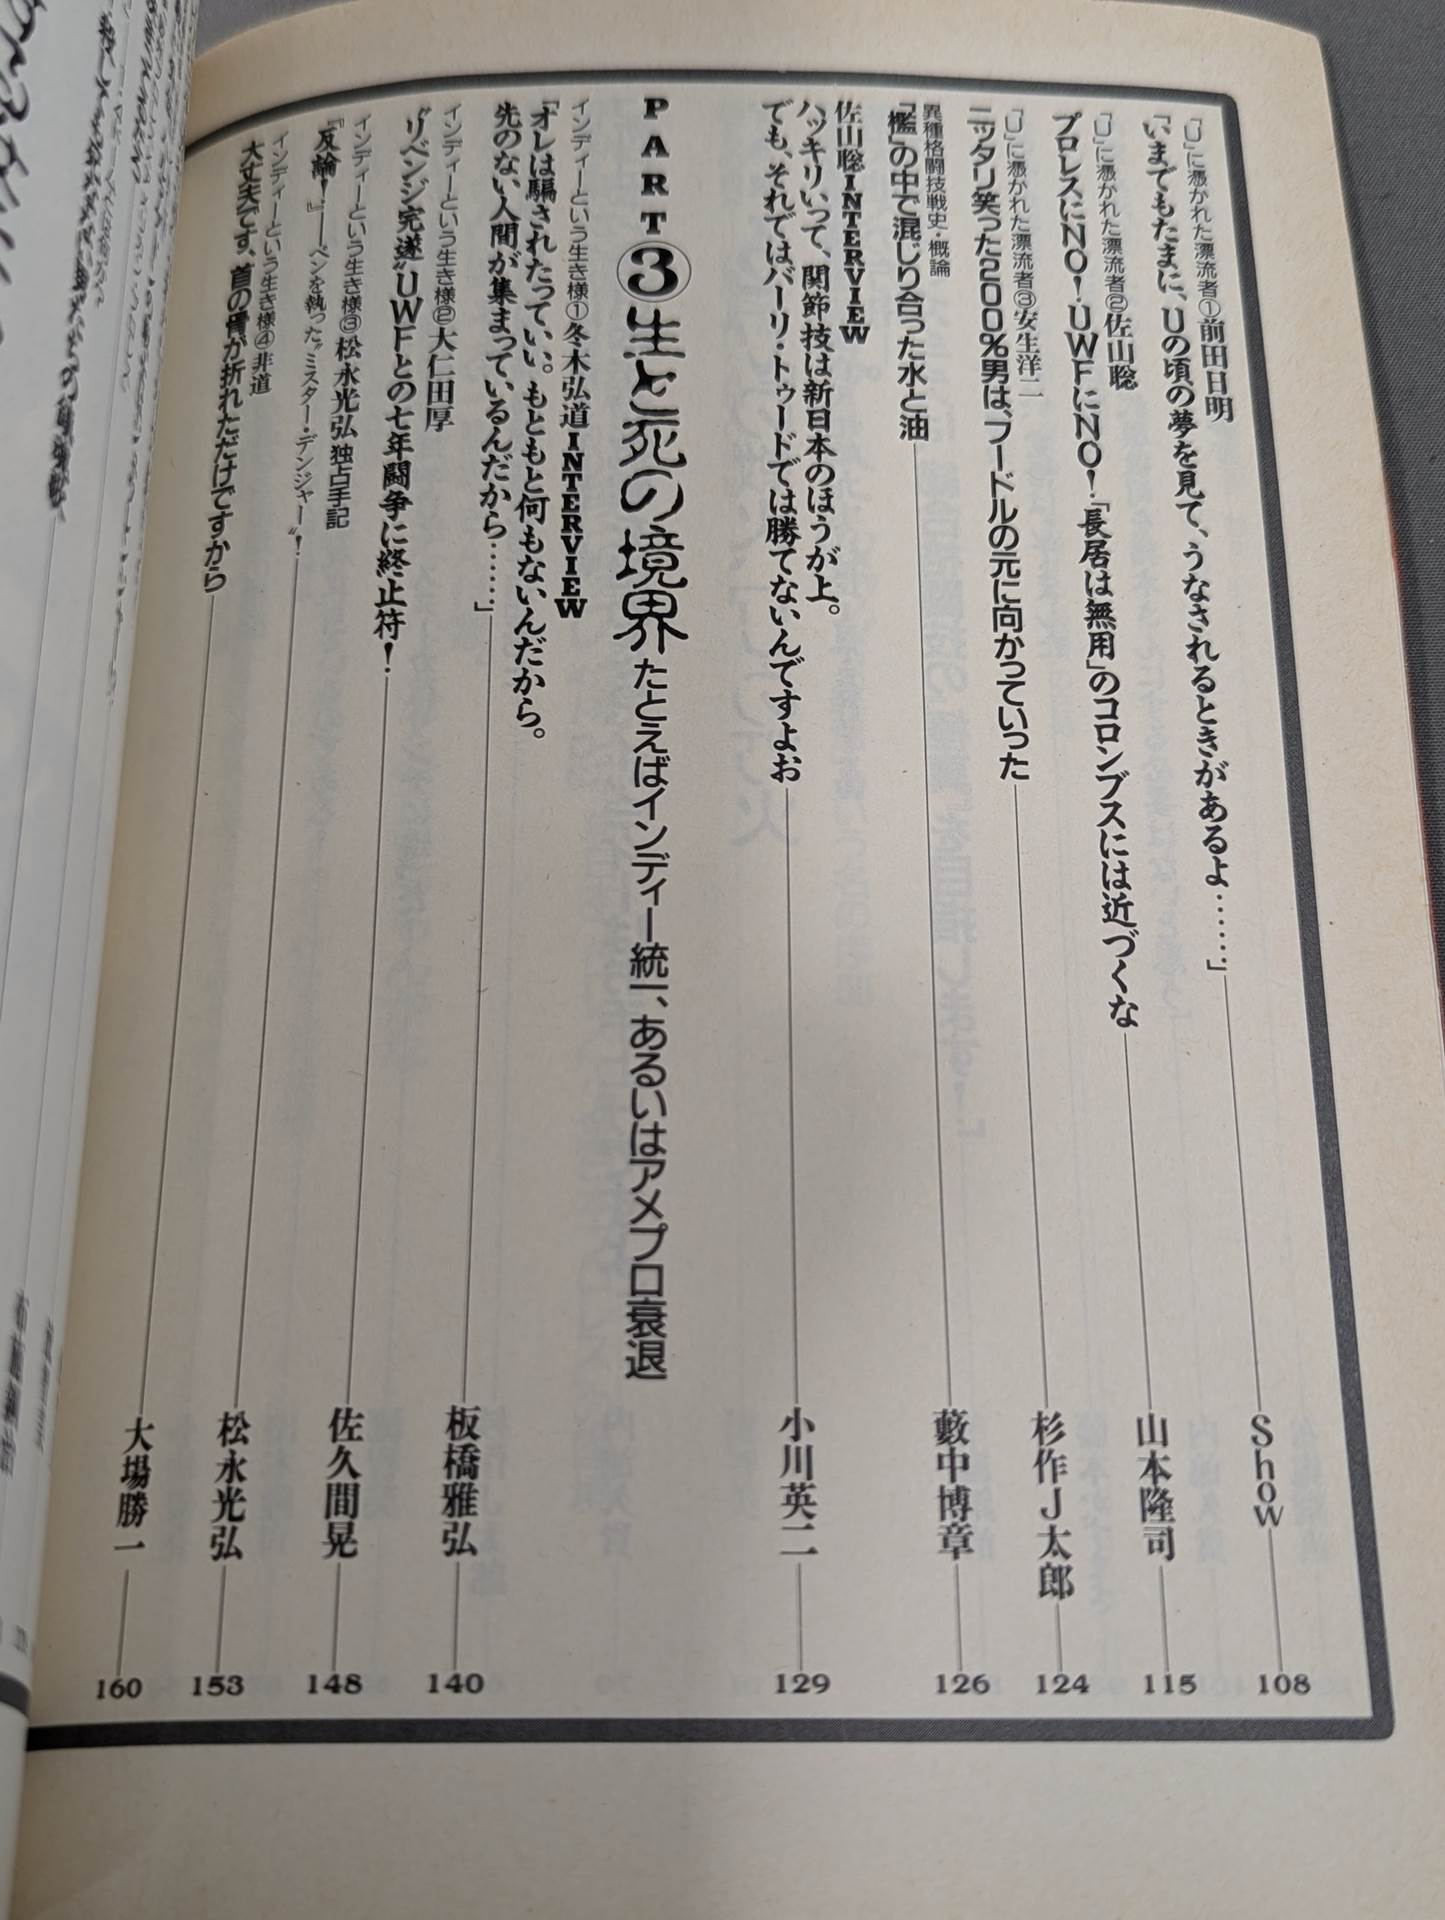 「U」に憑かれた漂流者①前田日明
「いまでもたまに、Uの頃の夢を見て、うなされるときがあるよ……」
Show
108
「U」に憑かれた漂流者②佐山聡
プロレスにNO！UWFにNO！「長居は無用」のコロンブスには近づくな
山本隆司
115
「U」に憑かれた漂流者③安生洋二
ニッタリ笑った200％男は、プードルの元に向かっていった
杉作J太郎
124
異種格闘技戦史・概論
「檻」の中で混じり合った水と油
藪中博章
126
佐山聡INTERVIEW
ハッキリいって、関節技は新日本のほうが上。
でも、それではバーリ・トゥードでは勝てないんですよお
小川英二
129
PART③生と死の境界 たとえばインディー統一、あるいはアメプロ衰退
インディーという生き様①冬木弘道INTERVIEW
「オレは騙されたっていい。もともと何もないんだから。
先のない人間が集まっているんだから……」
板橋雅弘
140
インディーという生き様②大仁田厚
“リベンジ完遂”UWFとの七年闘争に終止符！
佐久間晃
148
インディーという生き様③松永光弘 独占手記
『反論！』――ペンを執った“ミスター・デンジャー”！
松永光弘
153
インディーという生き様④非道
大丈夫です、首の骨が折れただけですから
大場勝一
160